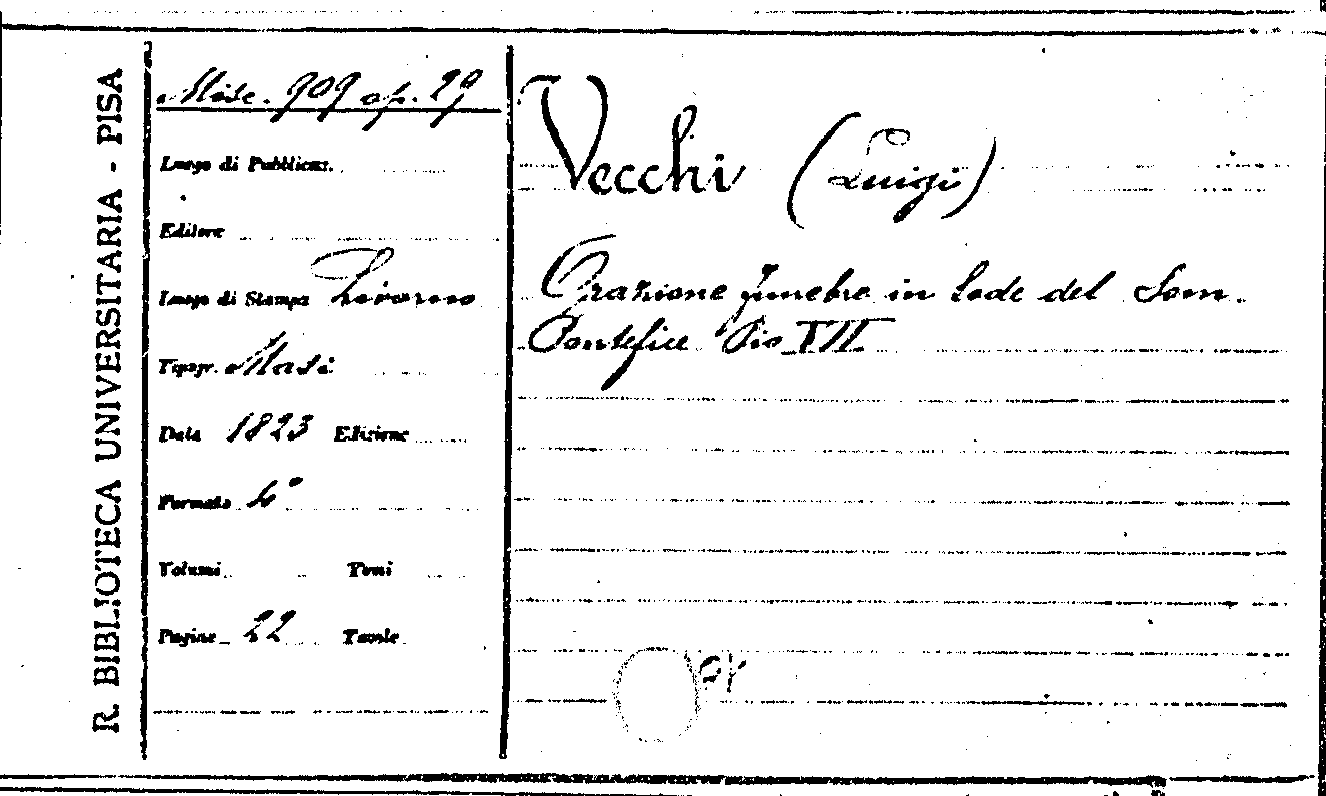 R. BIBLIOTECA UNIVERSITARIA - PISA
Misc. 909 op. 29
Luogo di Pubblicaz.
Editore
Luogo di Stampa Livorno
Tipogr. Masi
Data 1823 Edizione
Formato 4°
Volumi Tomi
Pagine 22 Tavole
Vecchi (Luigi)
Orazione funebre in lode del Som.
Pontefice Pio VII